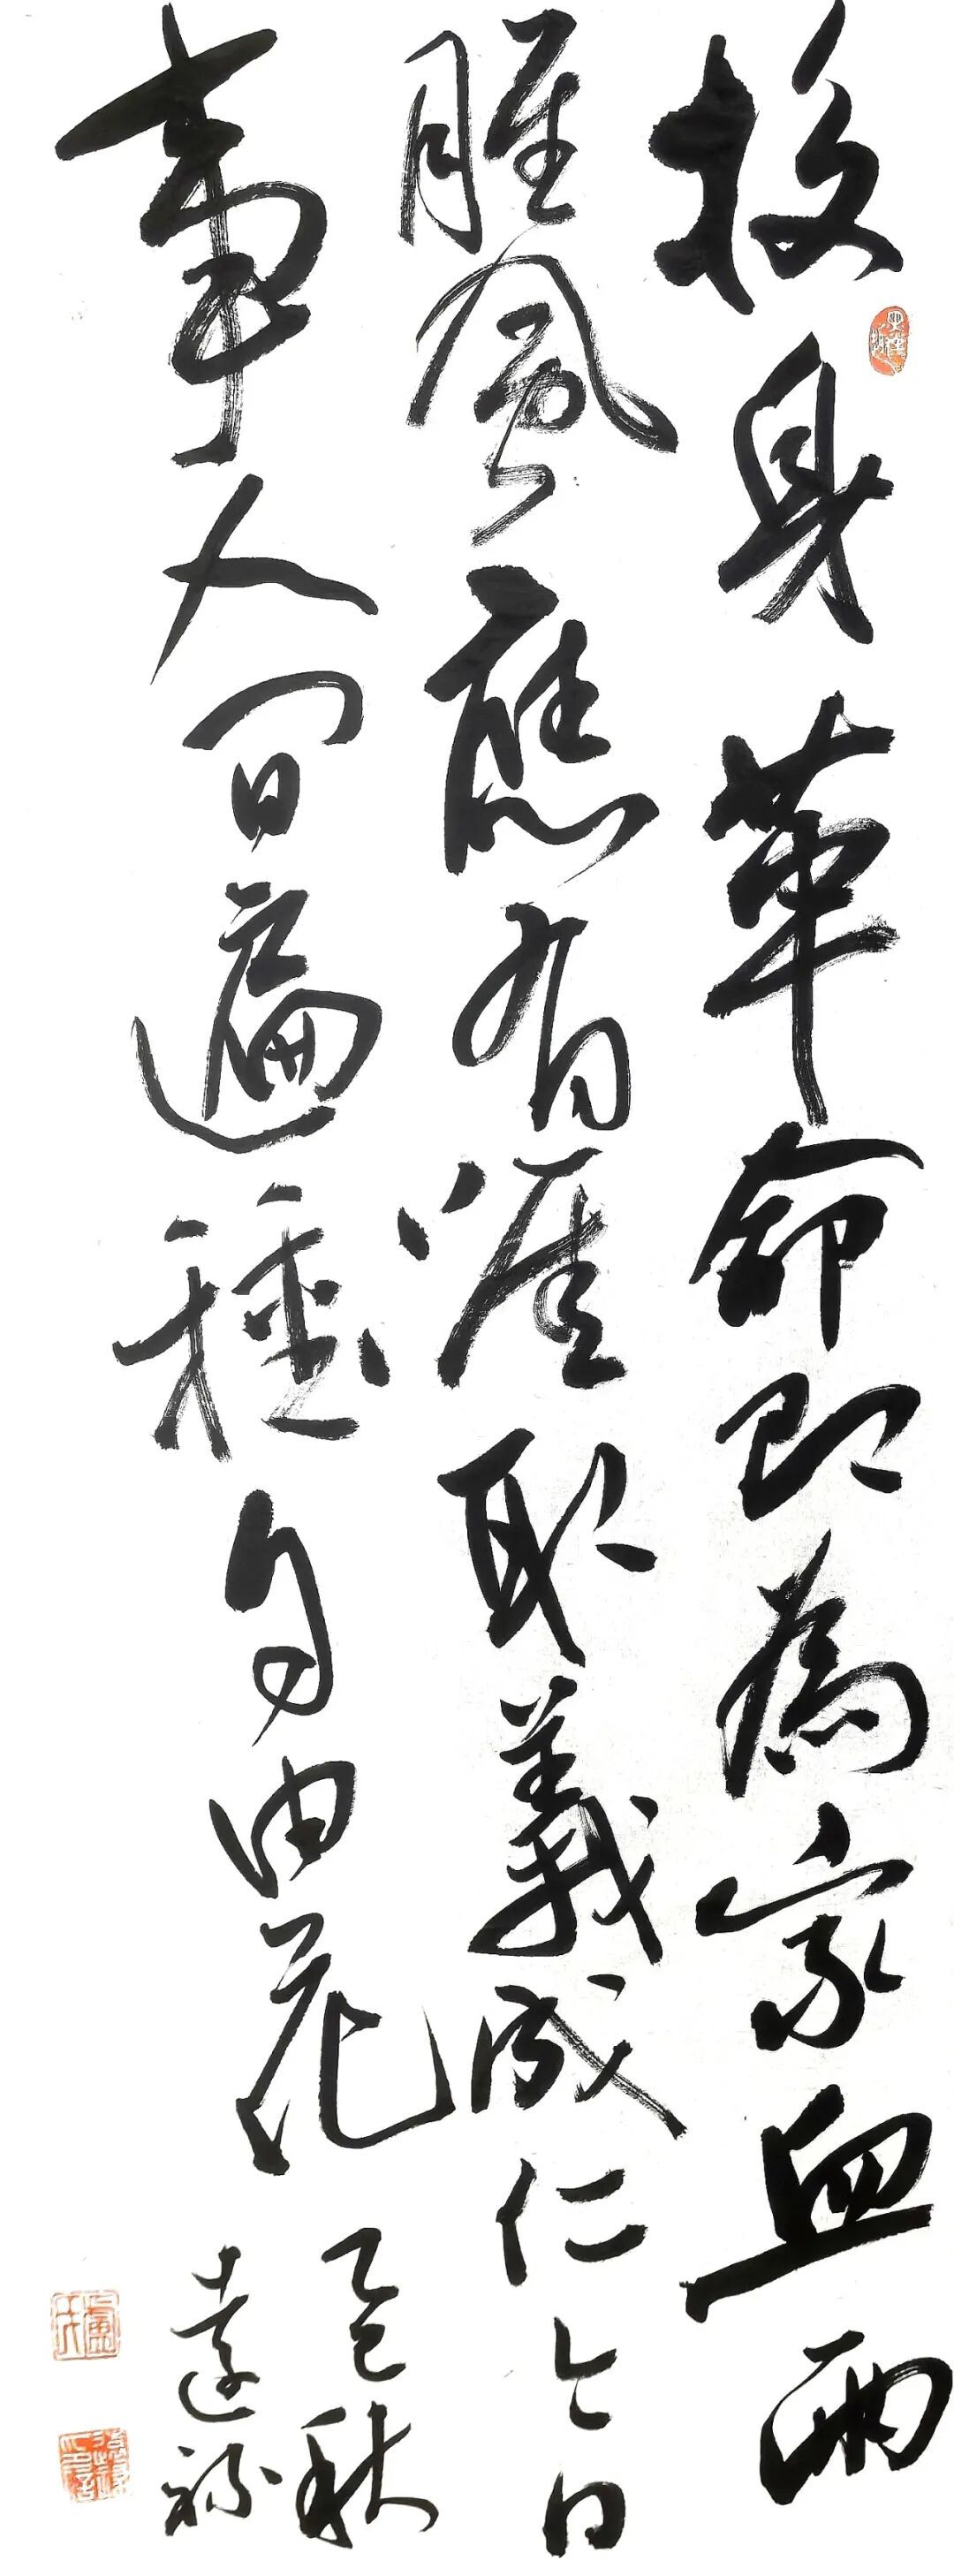 投身革命即為家血雨
腥風應有涯取義成仁今日
事人間遍種自由花
乙巳秋
遠